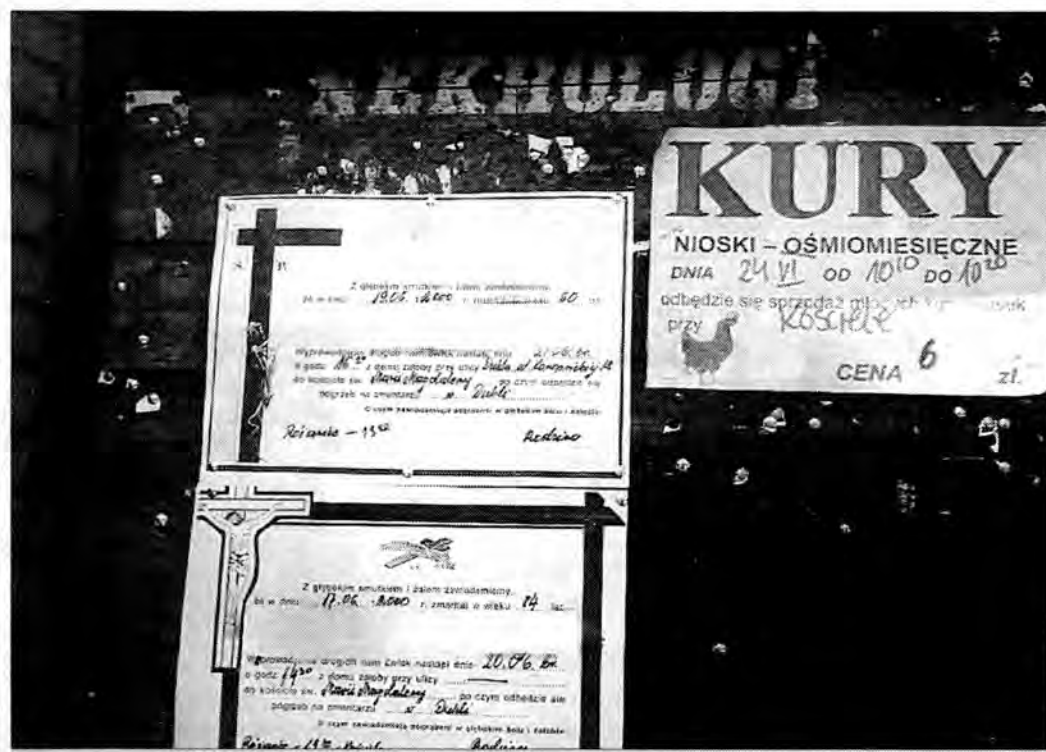 NEKROLOGI
KURY
NIOSKI – OŚMIOMIESIĘCZNE
DNIA 24 VI OD 10¹⁰ DO 10²⁰
odbędzie się sprzedaż młodych kur
przy KOŚCIELE
CENA 6 zł.
Z głębokim smutkiem i żalem zawiadamiamy,
że w dniu 19.06. 2000 r. 60 lat
Wyprowadzenie drogich nam zwłok nastąpi dnia 21.06. br.
o godz. z domu żałoby przy ulicy
do kościoła św. Marii Magdaleny po czym odbędzie się
pogrzeb na cmentarzu w Dukli
O czym zawiadamiają pogrążeni w głębokim bólu i żałobie
Różaniec – Rodzina
Z głębokim smutkiem i żalem zawiadamiamy,
że w dniu 17.06. 2000 r. zmarł w wieku 84 lat
Wyprowadzenie drogich nam zwłok nastąpi dnia 20.06. br.
o godz. 14³⁰ z domu żałoby przy ulicy
do kościoła św. Marii Magdaleny po czym odbędzie się
pogrzeb na cmentarzu w Dukli
O czym zawiadamiają pogrążeni w głębokim bólu i żałobie
Różaniec – Rodzina